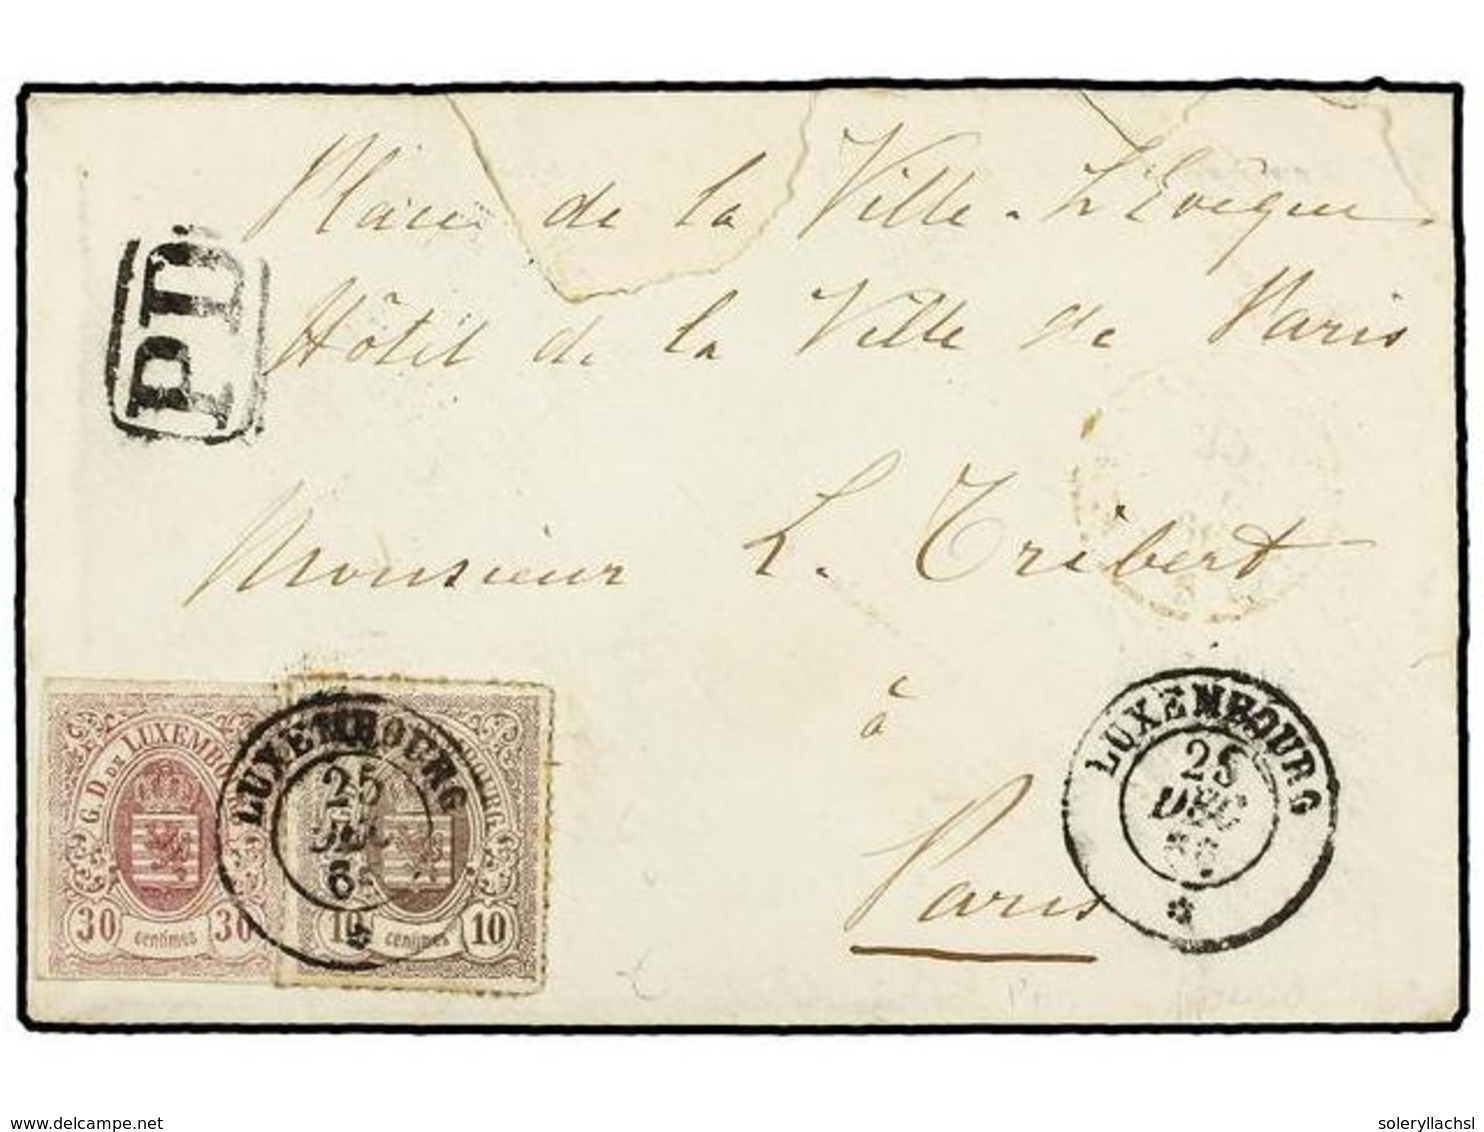 Place de la Ville-L'Evêque
Hôtel de la Ville de Paris
PD
Monsieur L. Tribert
à
Paris
LUXEMBOURG
25
DEC
LUXEMBOURG
25
DEC
G. D. DE LUXEMBO
30 centimes 30
BOURG
10 centimes 10
delcampe.net
soleryllachsl